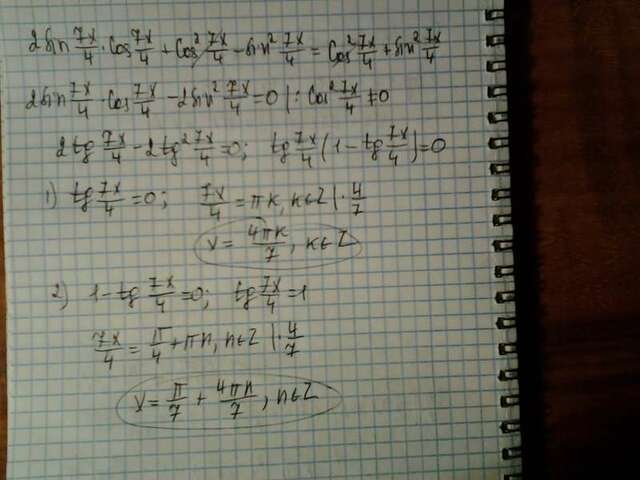 2sin 7x/4 · cos 7x/4 + cos² 7x/4 - sin² 7x/4 = cos² 7x/4 + sin² 7x/4
2sin 7x/4 · cos 7x/4 - 2sin² 7x/4 = 0 | : cos² 7x/4 ≠ 0
2tg 7x/4 - 2tg² 7x/4 = 0; tg 7x/4 (1 - tg 7x/4) = 0
1) tg 7x/4 = 0; 7x/4 = πk, k∈Z | · 4/7
x = 4πk/7, k∈Z
2) 1 - tg 7x/4 = 0; tg 7x/4 = 1
7x/4 = π/4 + πn, n∈Z | · 4/7
x = π/7 + 4πn/7, n∈Z